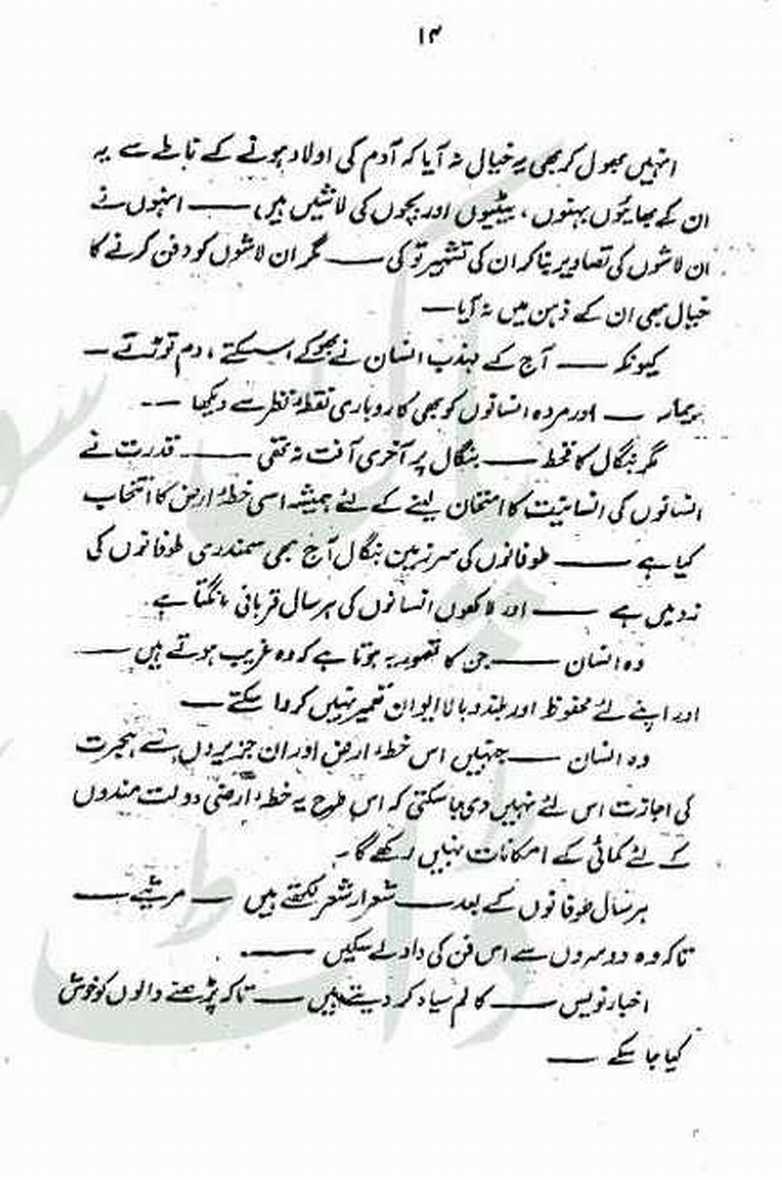 ۱۴
انہیں بھول کر بھی یہ خیال نہ آیا کہ آدم کی اولاد ہونے کے ناطے سے یہ
ان کے بھائیوں بہنوں، بیٹیوں اور بچوں کی لاشیں ہیں ——— انہوں نے
ان لاشوں کی تصاویر بنا کر ان کی تشہیر تو کی ——— مگر ان لاشوں کو دفن کرنے کا
خیال بھی ان کے ذہن میں نہ آیا —
کیونکہ ——— آج کے مہذب انسان نے بھوکے سسکتے، دم توڑتے —
بیمار — اور مردہ انسانوں کو بھی کاروباری نقطۂ نظر سے دیکھا --
مگر بنگال کا قحط ——— بنگال پر آخری آفت نہ تھی ——— قدرت نے
انسانوں کی انسانیت کا امتحان لینے کے لئے ہمیشہ اسی خطۂ ارض کا انتخاب
کیا ہے ——— طوفانوں کی سرزمین بنگال آج بھی سمندری طوفانوں کی
زد میں ہے ——— اور لاکھوں انسانوں کی ہر سال قربانی مانگتا ہے
وہ انسان ——— جن کا قصور یہ ہوتا ہے کہ وہ غریب ہوتے ہیں ———
اور اپنے لئے محفوظ اور بلند و بالا ایوان تعمیر نہیں کروا سکتے —
وہ انسان ——— جنہیں اس خطۂ ارض اور ان جزیروں سے ہجرت
کی اجازت اس لئے نہیں دی جا سکتی کہ اس طرح یہ خطۂ ارضی دولت مندوں
کے لئے کمائی کے امکانات نہیں رکھے گا -
ہر سال طوفانوں کے بعد ——— شعرا شعر لکھتے ہیں — مرثیے ———
تاکہ وہ دوسروں سے اس فن کی داد لے سکیں ———
اخبار نویس ——— کالم سیاہ کر دیتے ہیں ——— تاکہ پڑھنے والوں کو خوش
کیا جا سکے ———
پاک